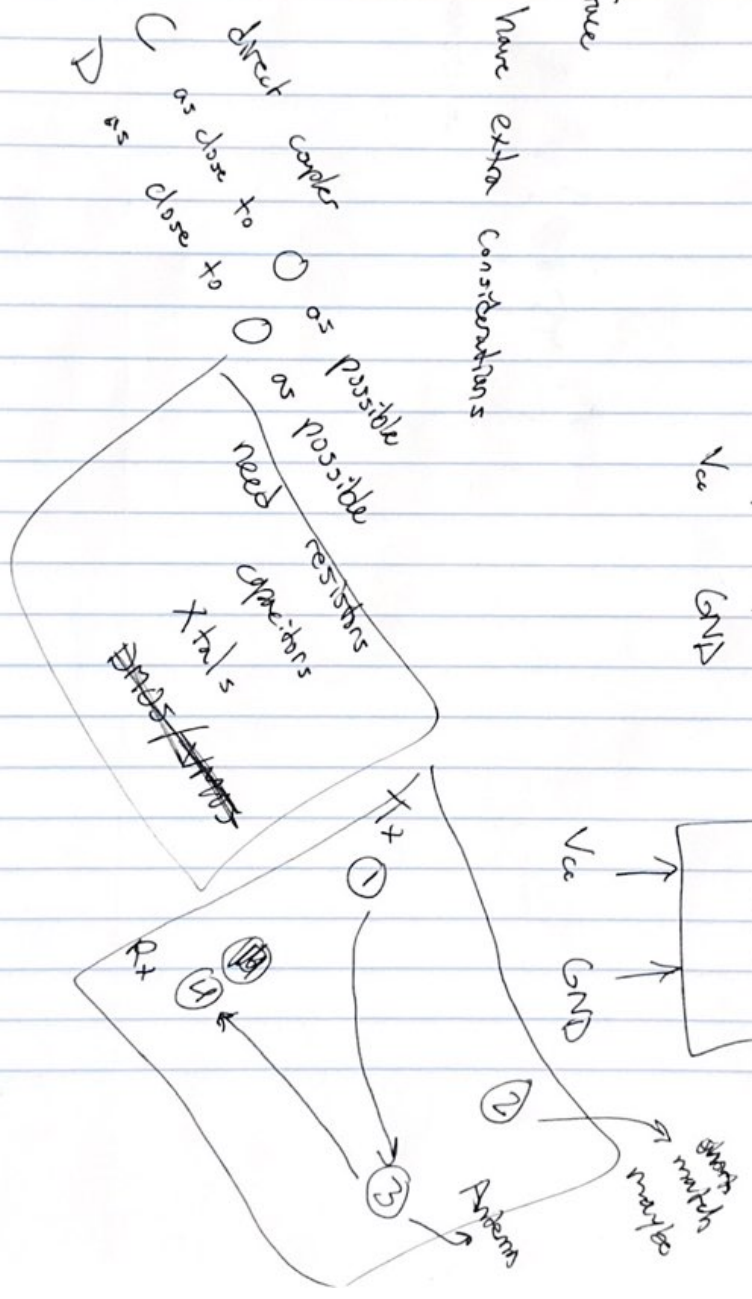 have extra considerations
Vcc GND
direct coupler
C as close to O as possible
D as close to O as possible
need resistors
capacitors
Xtals
Vcc
GND
Tx
1
2
match
maybe
3
Antenna
4
Rx